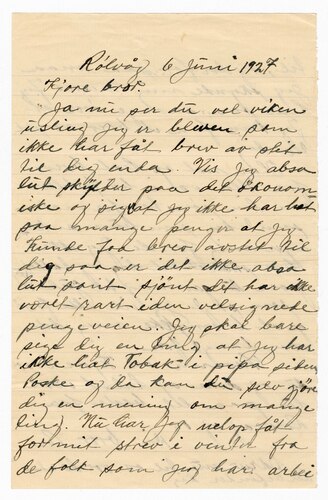 Rølvåg 6 Juni 1927
Kjære bror.
Ja nu ser du vel viken
usling jeg er bleven som
ikke har fåt brev av slit
til dig enda. Vis jeg abso
lut skylder paa det økonom
iske og sig at jeg ikke har hat
saa mange penger at jeg
kunde faa brev avstet til
dig saa er det ikke abso
lut sant sjønt det har ikke
vært rart iden velsignede
pengeveien. Jeg skal bare
sige dig en ting at jeg har
ikke hat Tobak i pipa siden
Poske og da kan du selv gjøre
dig en mening om mange
ting. Nu har jeg netop fåt
for mit strev i vinter fra
de folk som jeg har arbei